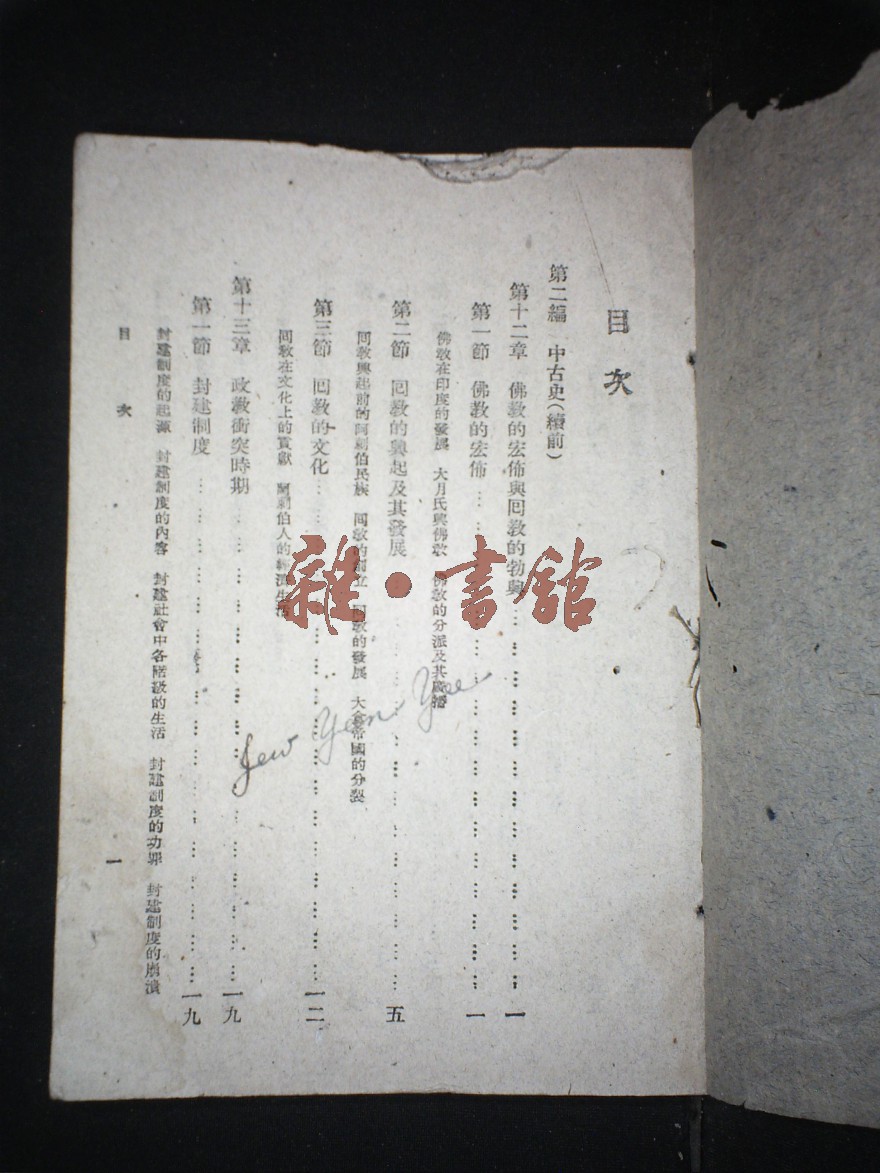 目次
第二編　中古史（續前）
第十二章　佛敎的宏佈與囘敎的勃興……一
第一節　佛敎的宏佈……一
佛敎在印度的發展　大月氏與佛敎　佛敎的分派及其廣播
第二節　囘敎的興起及其發展……五
囘敎興起前的阿剌伯民族　囘敎的創立　囘敎的發展　大食帝國的分裂
第三節　囘敎的文化……一二
囘敎在文化上的貢獻　阿剌伯人的經濟生活
第十三章　政敎衝突時期……一九
第一節　封建制度……一九
封建制度的起源　封建制度的內容　封建社會中各階級的生活　封建制度的功罪　封建制度的崩潰
目次　一
雜·書館
Jew Yen Yee